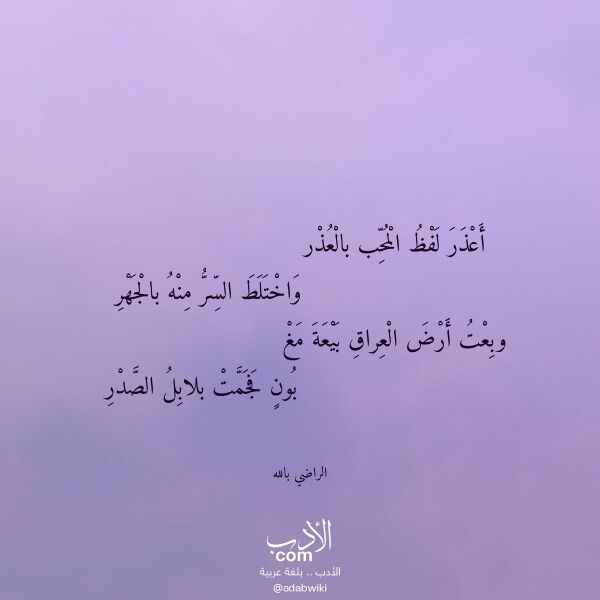 أَعْذَرَ لَفْظُ الْمُحِّب بالْعُذْر
وَاخْتَلَطَ السِّرُّ مِنْهُ بالْجَهْرِ
وبِعْتُ أَرْضَ الْعِراقِ بَيْعَةَ مَغْ
بُونٍ فَجَمَّتْ بلابِلُ الصَّدْرِ
الراضي بالله
الأدب
com
الأدب .. بلغة عربية
@adabwiki